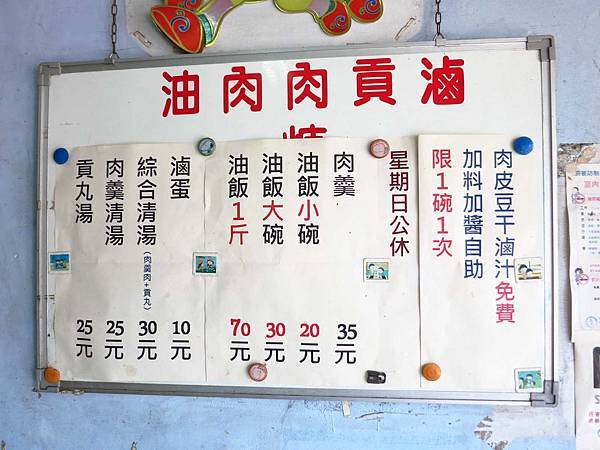 油肉肉貢滷
肉皮豆干滷汁免費
加料加醬自助
限1碗1次
星期日公休
肉羹 35元
油飯小碗 20元
油飯大碗 30元
油飯1斤 70元
滷蛋 10元
綜合清湯(肉羹肉+貢丸) 30元
肉羹清湯 25元
貢丸湯 25元